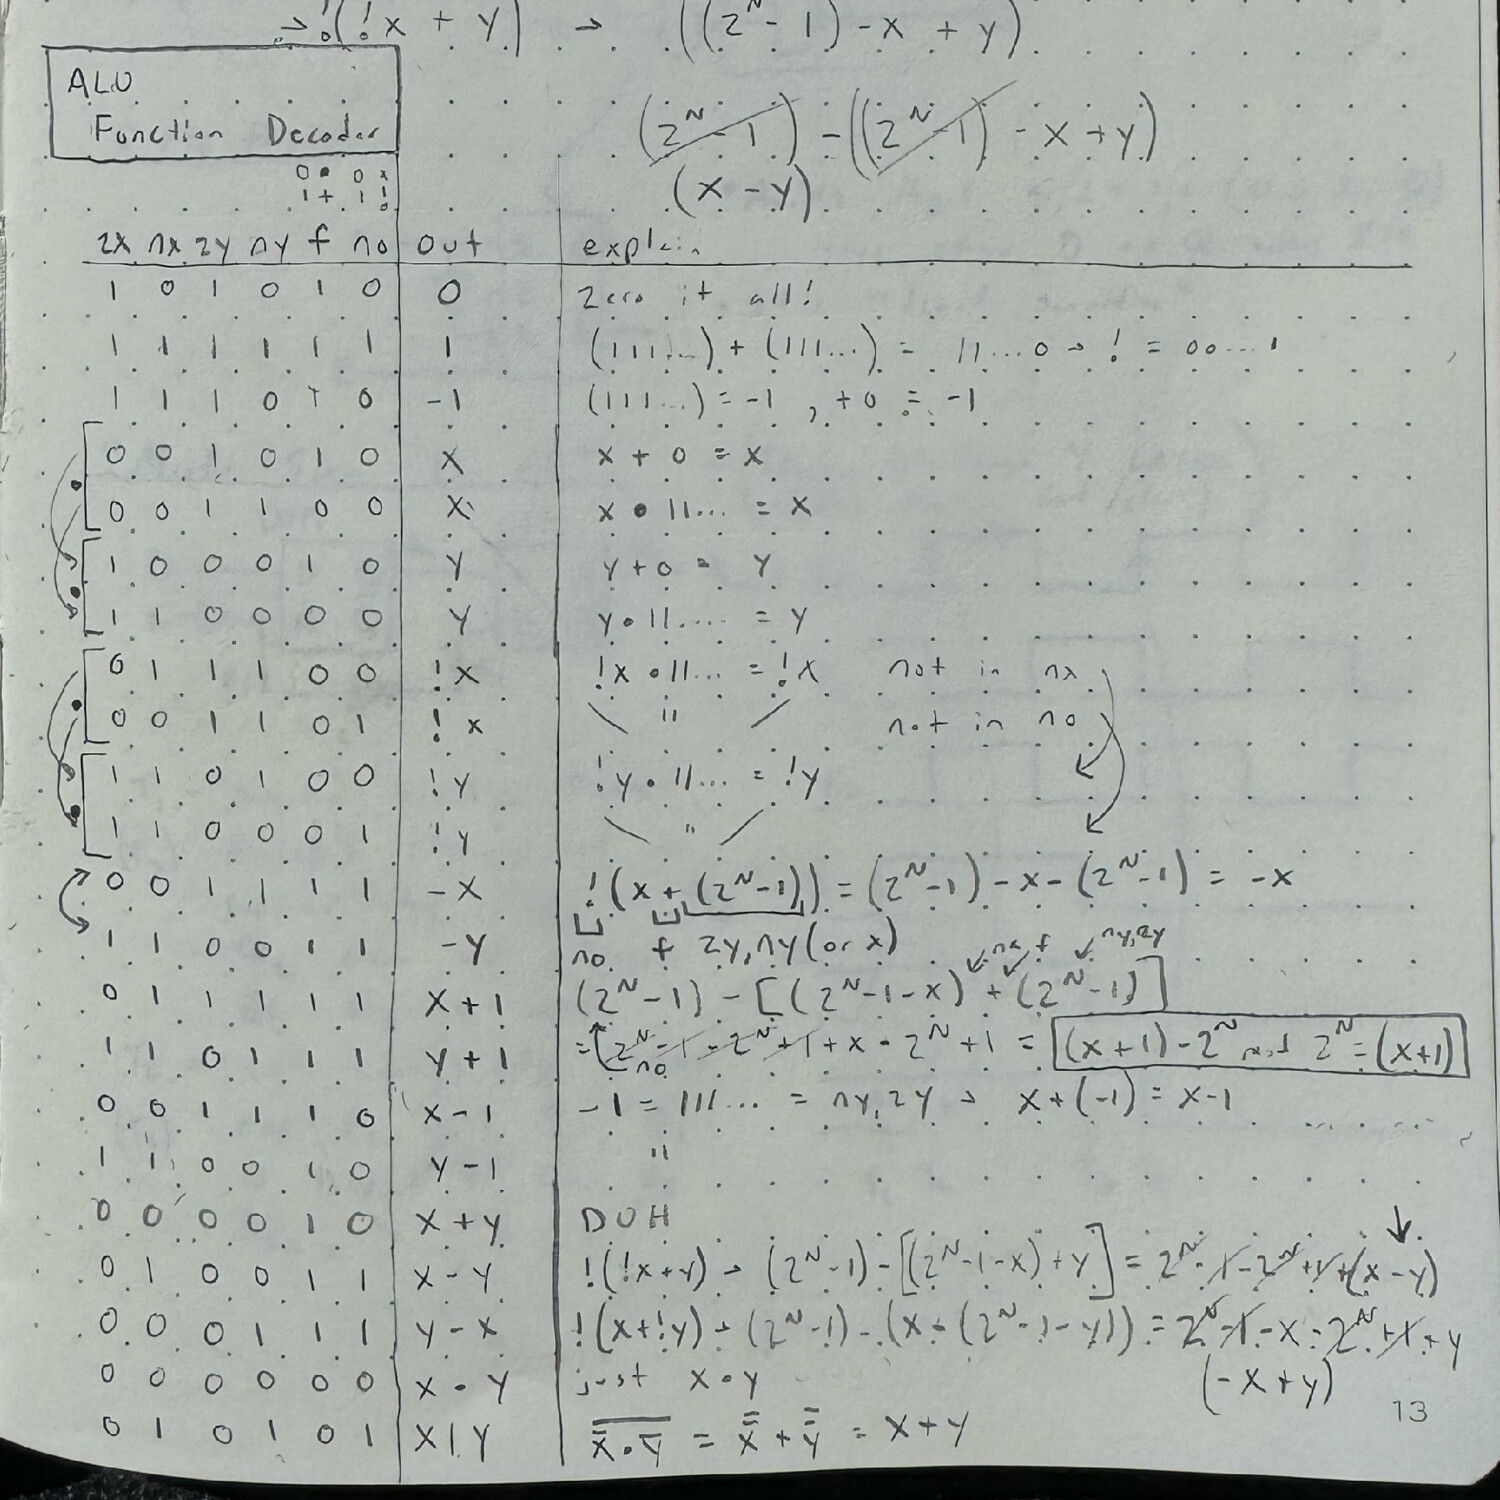 → !(!x + y) → ((2^N - 1) - x + y)
ALU
Function Decoder
(2^N - 1) - ((2^N - 1) - x + y)
(x - y)
0 • 0 x
1 + 1 !
zx nx zy ny f no out explain
1 0 1 0 1 0 0 Zero it all!
1 1 1 1 1 1 1 (111...) + (111...) = 11...0 → ! = 00...1
1 1 1 0 1 0 -1 (111...) = -1 , +0 = -1
0 0 1 0 1 0 x x + 0 = x
0 0 1 1 0 0 x x • 11... = x
1 0 0 0 1 0 y y + 0 = y
1 1 0 0 0 0 y y • 11.... = y
0 1 1 1 0 0 !x !x • 11... = !x not in nx
0 0 1 1 0 1 !x \ " / not in no
1 1 0 1 0 0 !y !y • 11... = !y
1 1 0 0 0 1 !y \ " /
0 0 1 1 1 1 -x !(x + (2^N-1)) = (2^N-1) - x - (2^N-1) = -x
1 1 0 0 1 1 -y no f zy, ny (or x)
nx f ny, zy
0 1 1 1 1 1 x+1 (2^N-1) - [(2^N-1-x) + (2^N-1)]
1 1 0 1 1 1 y+1 = (2^N-1 - 2^N+1 + x - 2^N + 1 = (x+1) - 2^N mod 2^N = (x+1)
no
0 0 1 1 1 0 x-1 -1 = 111... = ny, zy → x + (-1) = x-1
1 1 0 0 1 0 y-1 "
0 0 0 0 1 0 x+y DUH
0 1 0 0 1 1 x-y !(!x+y) → (2^N-1) - [(2^N-1-x) + y] = 2^N-1-2^N+1+(x-y)
0 0 0 1 1 1 y-x !(x+!y) → (2^N-1) - (x + (2^N-1-y)) = 2^N-1-x-2^N+1+y
(-x+y)
0 0 0 0 0 0 x•y just x•y
0 1 0 1 0 1 x|y x̅̅ • y̅ = x̿ + y̿ = x+y
13